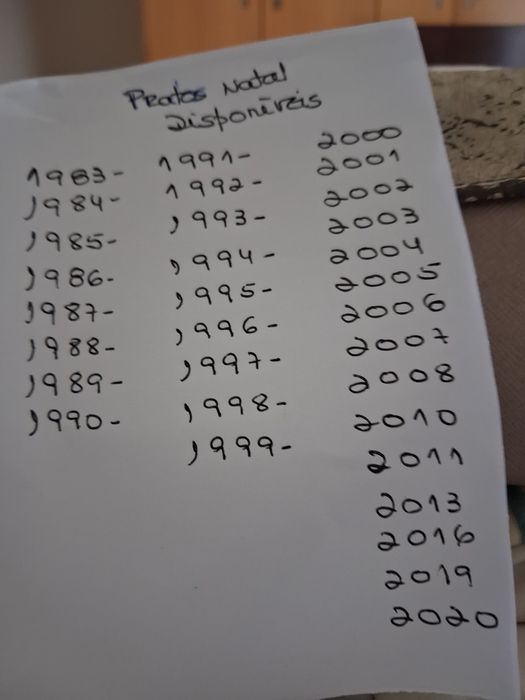 Pratos Natal
Disponíveis
1983-
1984-
1985-
1986-
1987-
1988-
1989-
1990-
1991-
1992-
1993-
1994-
1995-
1996-
1997-
1998-
1999-
2000
2001
2002
2003
2004
2005
2006
2007
2008
2010
2011
2013
2016
2019
2020